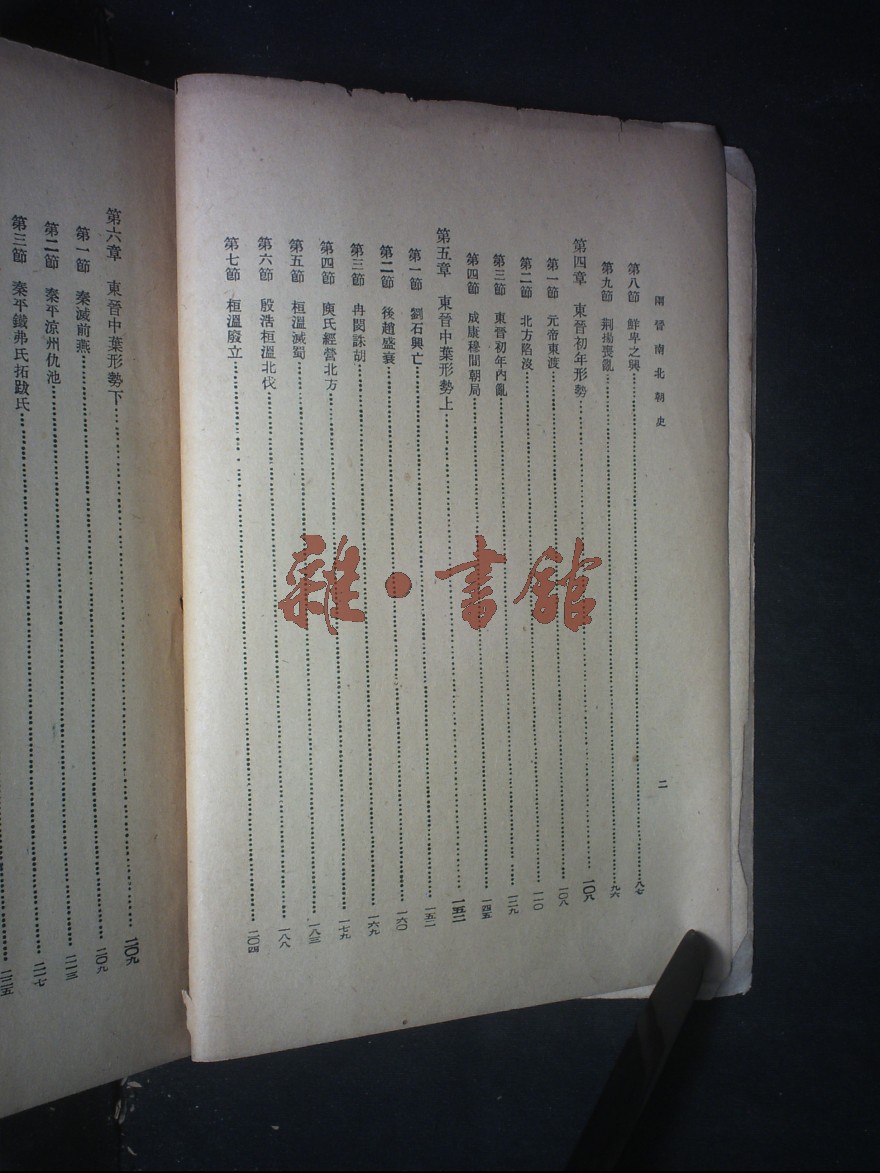 兩晉南北朝史 二
第八節 鮮卑之興 八七
第九節 荆揚喪亂 九六
第四章 東晉初年形勢 一〇八
第一節 元帝東渡 一〇八
第二節 北方陷沒 一一〇
第三節 東晉初年內亂 一二九
第四節 成康穆間朝局 一四五
第五章 東晉中葉形勢上 一五二
第一節 劉石興亡 一五二
第二節 後趙盛衰 一六〇
第三節 冉閔誅胡 一六九
第四節 庾氏經營北方 一七九
第五節 桓溫滅蜀 一八三
第六節 殷浩桓溫北伐 一八八
第七節 桓溫廢立 二〇四
第六章 東晉中葉形勢下 二〇九
第一節 秦滅前燕 二〇九
第二節 秦平涼州仇池 二一三
第三節 秦平鐵弗氏拓跋氏 二一七
二二五
雜·書館